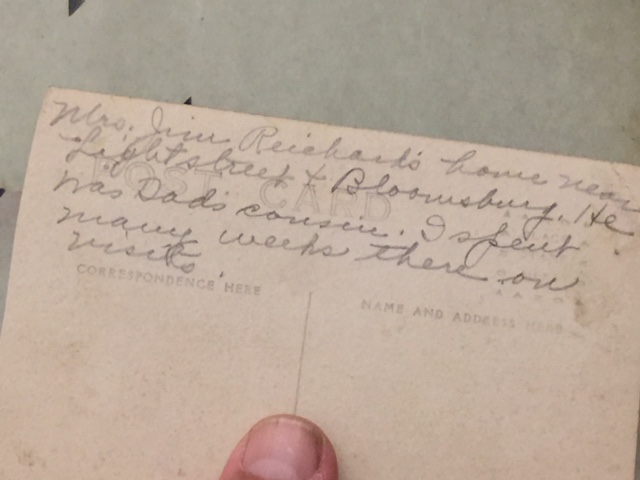 Mrs. Jim Reichard's home near
Lightstreet & Bloomsburg. He
was Dad's cousin. I spent
many weeks there on
visits.
POST CARD
CORRESPONDENCE HERE
NAME AND ADDRESS HERE